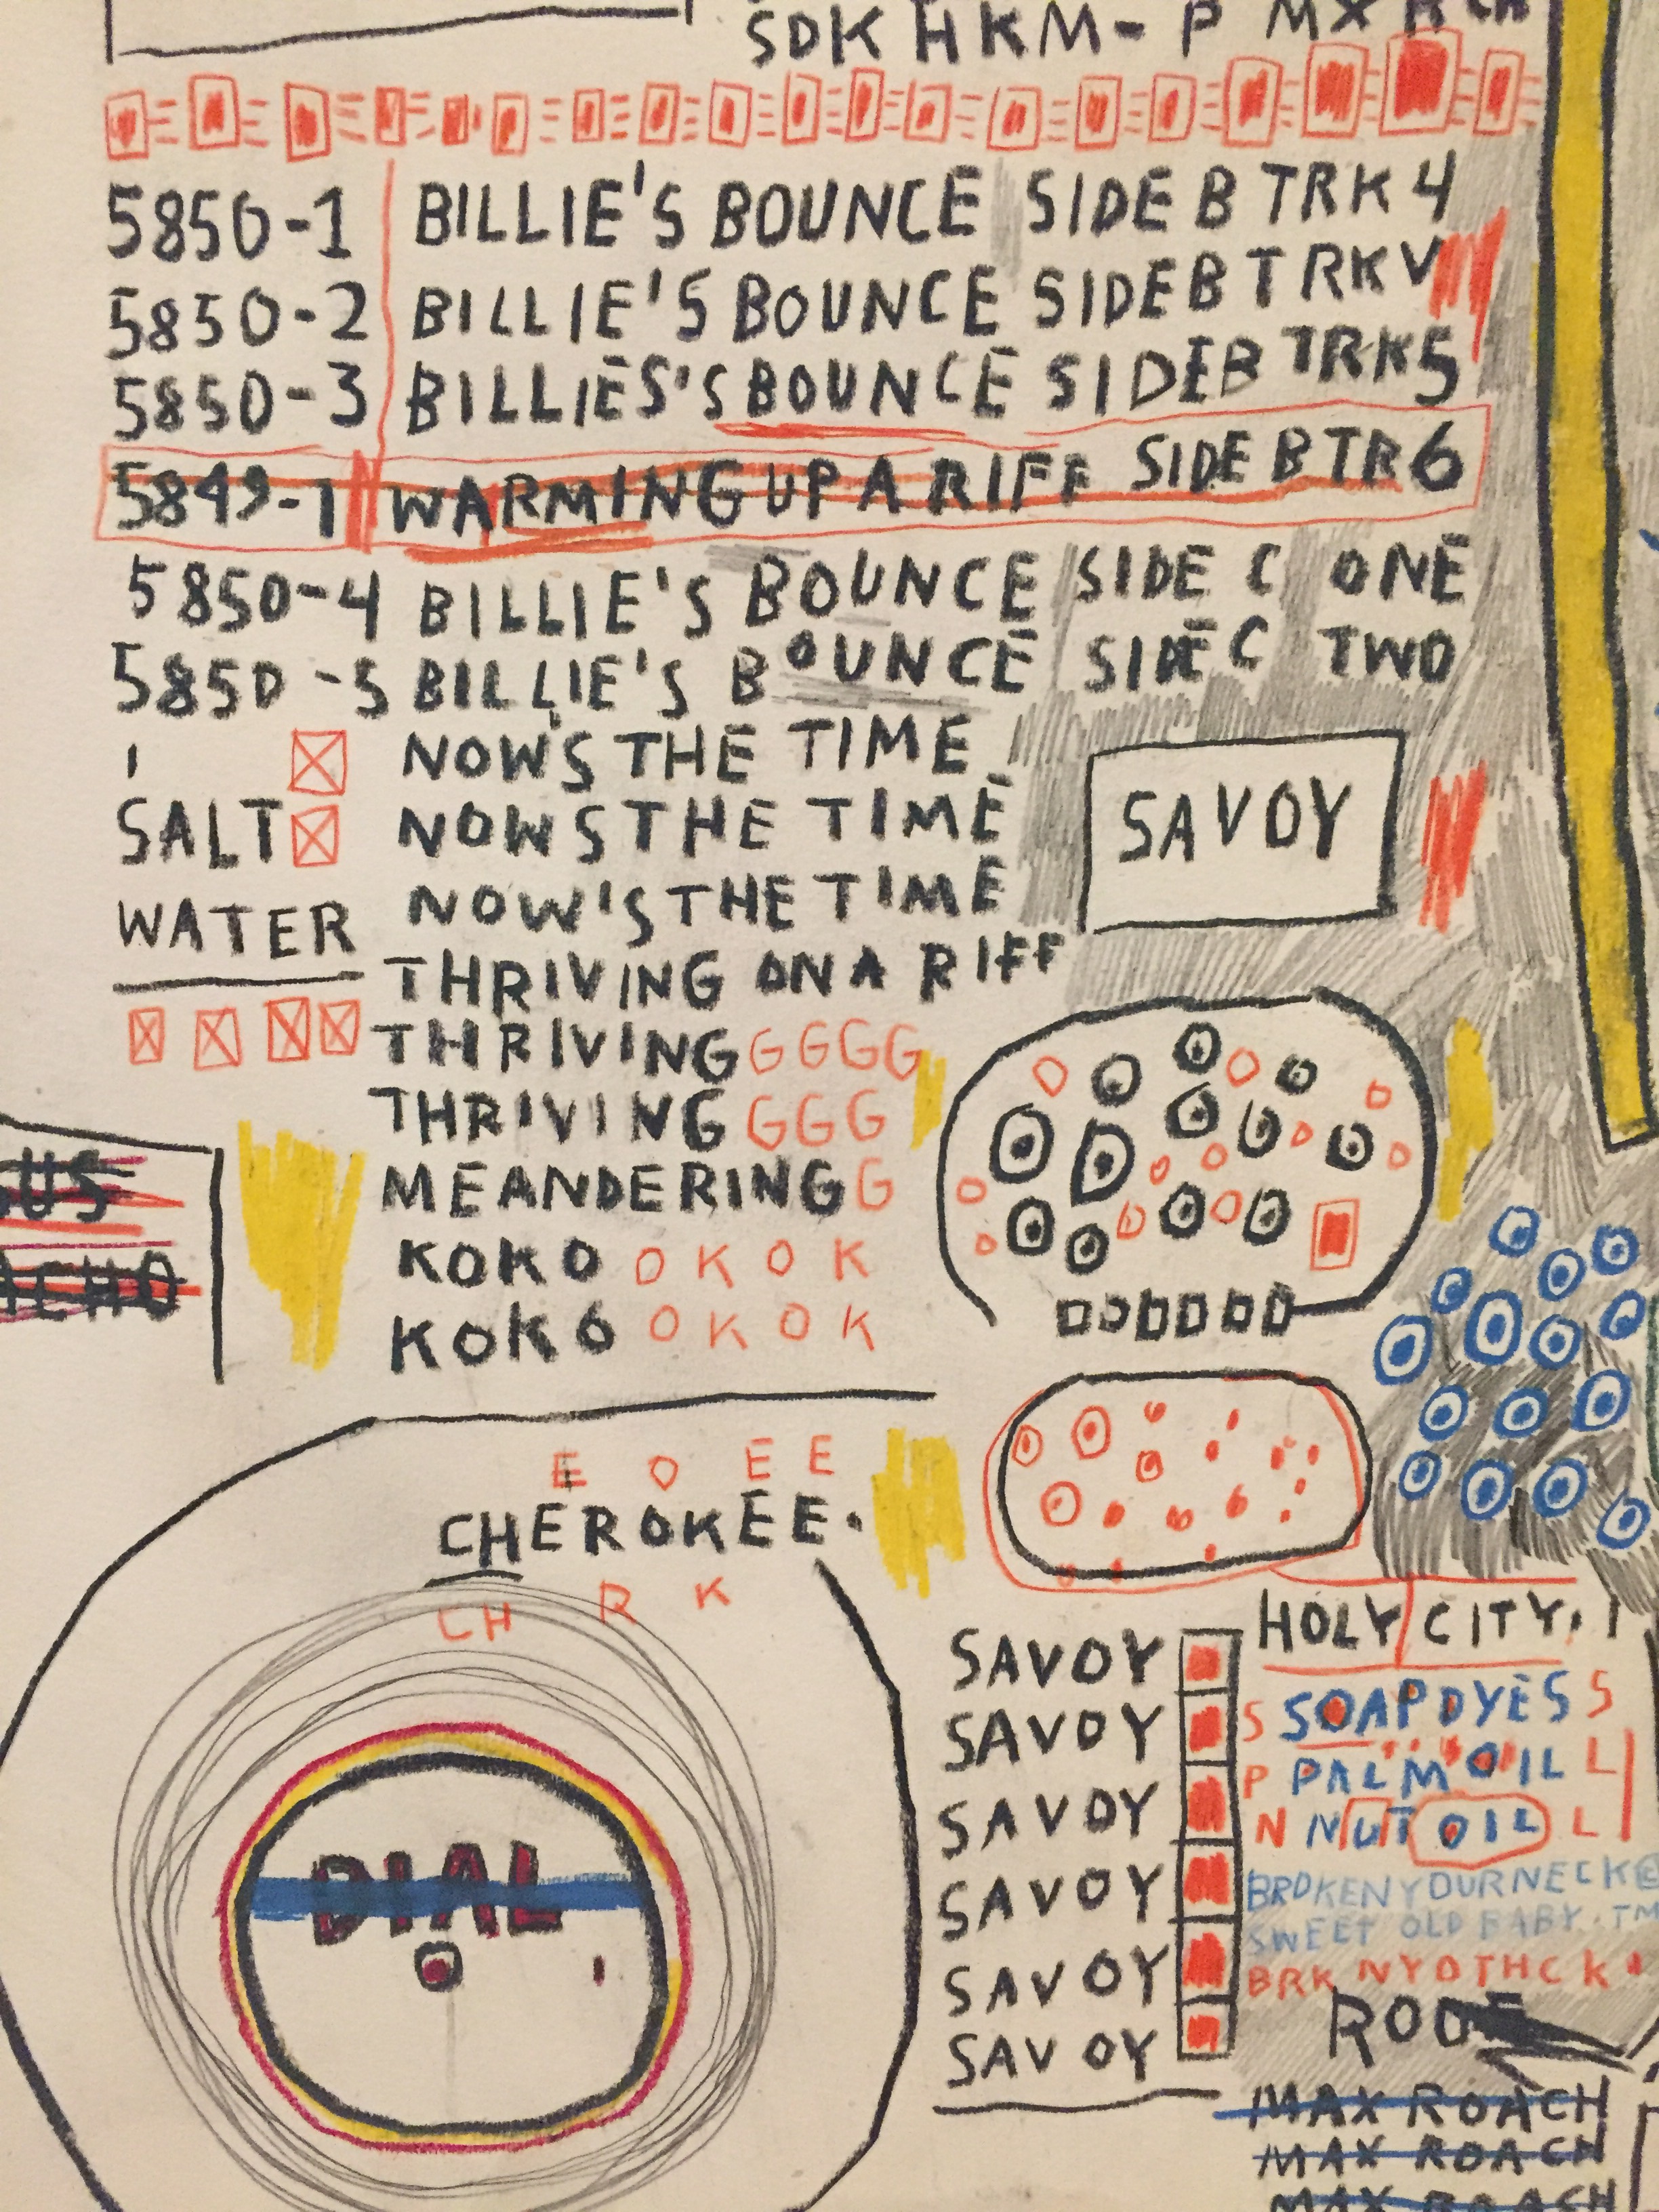 SDK HKM- P MX RCH
5850-1 BILLIE'S BOUNCE SIDE B TRK 4
5850-2 BILLIE'S BOUNCE SIDEB TRK V
5850-3 BILLIES'S BOUNCE SIDEB TRK5
5849-1 WARMING UP A RIFF SIDE B TR6
5850-4 BILLIE'S BOUNCE SIDE C ONE
5850-5 BILLIE'S BOUNCE SIDE C TWO
NOW'S THE TIME
SALT NOWS THE TIME
SAVOY
WATER NOW'S THE TIME
THRIVING ON A RIFF
THRIVING GGGG
THRIVING GGG
MEANDERING G
KOKO OKOK
KOKO OKOK
ACHO
E O E E
CHEROKEE.
CH R K
DIAL
HOLY CITY.
SAVOY
SAVOY
SAVOY
SAVOY
SAVOY
SAVOY
S SOAP DYES S
P PALM OIL L
N NUT OIL L
BROKEN YOUR NECK©
SWEET OLD BABY.TM
BRK NYOTHCK
MAX ROACH
MAX ROACH
MAX ROACH